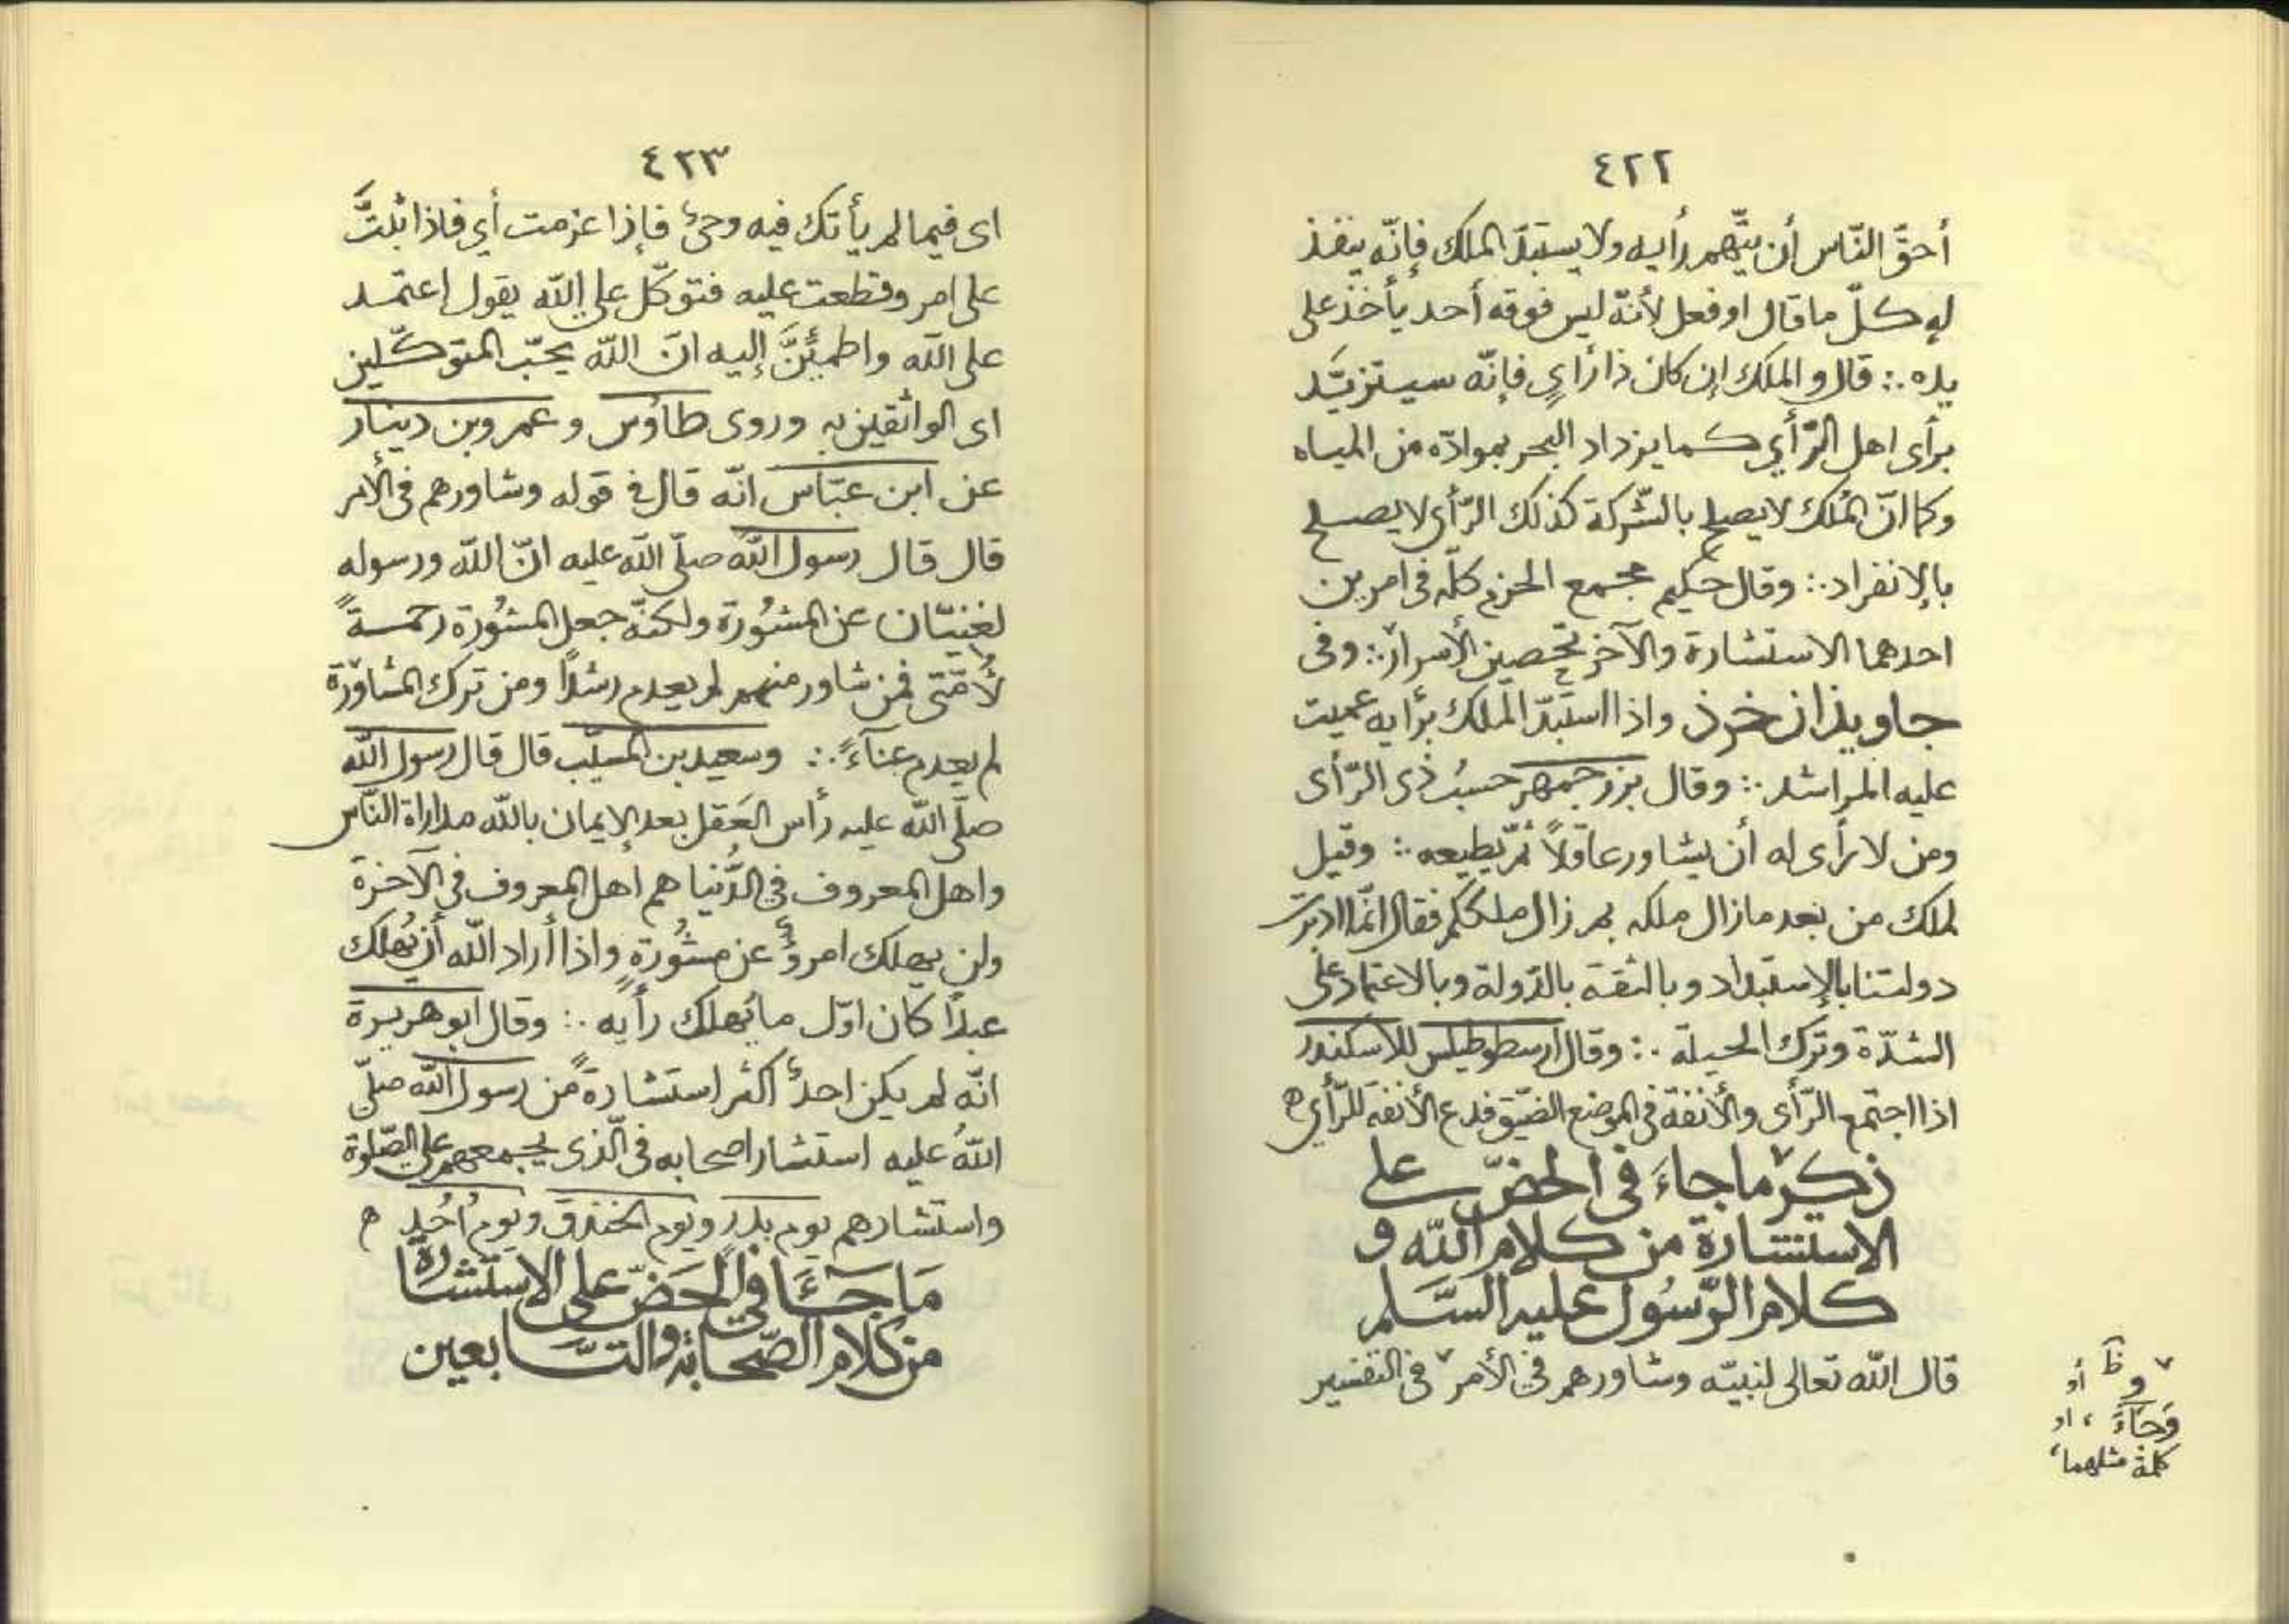 ٤٢٢
أحقّ النّاس أن يتّهم رأيه ولا يستبدّ الملك فإنّه ينفذ
له كلّ ما قال او فعل لأنّه ليس فوقه أحد يأخذ على
يده ∴ قال و الملك إن كان ذا رأيٍ فإنّه سيتزيّد
برأى اهل الرّأي كما يزداد البحر بموادّه من المياه
وكما انّ المُلك لا يصلح بالشّركة كذلك الرّأى لا يصلح
بالإنفراد ∴ وقال حكيم مجمع الحزم كلّه فى امرين
احدهما الاستشارة والآخر تحصين الأسرار ∴ وفى
جاويذان خرذ واذا استبدّ الملك برأيه عميت
عليه المراشد ∴ وقال بزرجمهر حسبُ ذى الرّأى
ومن لا رأى له أن يشاور عاقلاً ثمّ يطيعه ∴ وقيل
لملك من بعد ما زال ملكه بم زال ملككم فقال انّما ادبرت
دولتنا بالإستبداد وبالثقة بالدّولة وبالاعتماد على
الشدّة وترك الحيلة ∴ وقال ارسطوطيلس للاسكندر
اذا اجتمع الرّأى والأنفة فى الموضع الضيّق فدع الأنفة للرّأي ه
ذكر ما جاءَ فى الحضّ على
الاستشارة من كلام الله و
كلام الرّسُول عليه السّلم
قال الله تعالى لنبيّه وشاورهم فى الأمر ٧ فى التفسير
٧ وظ أو
وَجَاءَ ، او
كلمة مثلهما،
٤٢٣
اى فيما لم يأتك فيه وحىٌ فإذا عزمت أي فاذا ثبتَّ
على امر وقطعت عليه فتوكّل على الله يقول اعتمد
على الله واطمئِنَّ إليه انّ الله يحبّ المتوكّلين
اى الواثقين به وروى طاوُس وعمرو بن دينار
عن ابن عبّاس انّه قال فى قوله وشاورهم فى الأمر
قال قال رسول الله صلّى الله عليه انّ الله ورسوله
لغنيّان عن المشُورة ولكنّه جعل المشُورة رحمةً
لأُمّتى فمن شاور منهم لم يعدم رشداً ومن ترك المشاورة
لم يعدم عنآءً ∴ وسعيد بن المسيّب قال قال رسول الله
صلّى الله عليه رأس العَقل بعد الإيمان بالله مداراة النّاس
واهل المعروف فى الدُّنيا هم اهل المعروف فى الآخرة
ولن يهلك امرؤٌ عن مشُورةٍ واذا أراد الله أن يُهلك
عبداً كان اوّل ما يُهلك رأيه ∴ وقال ابو هريرة
انّه لم يكن احدٌ اكثر استشارةً من رسول الله صلّى
اللهُ عليه استشار اصحابه فى الّذى يجمعهم على الصّلوة
واستشارهم يوم بدرٍ ويوم الخندق ويوم اُحُدٍ ه
مَا جَآءَ فى الحَضّ على الاستشارة
من كلام الصّحابة والتّابعين